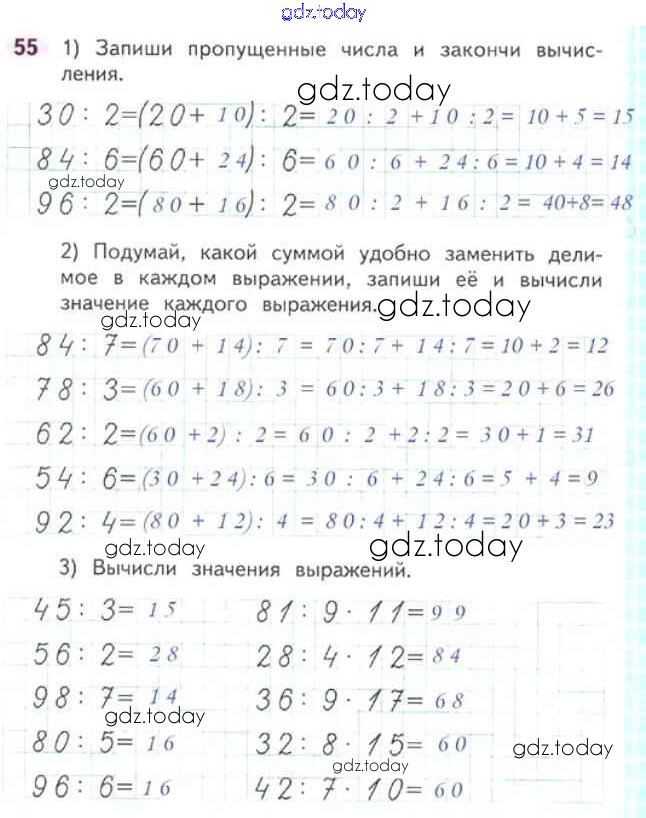 gdz.today
55 1) Запиши пропущенные числа и закончи вычис-
ления.
gdz.today
30 : 2=(20+ 10) : 2= 20 : 2 +10 : 2= 10+5=15
84 : 6=(60+ 24) : 6= 60 : 6 + 24:6=10+4=14
gdz.today
96 : 2=(80+ 16) : 2= 80 : 2 + 16 : 2= 40+8=48
2) Подумай, какой суммой удобно заменить дели-
мое в каждом выражении, запиши её и вычисли
значение каждого выражения.
gdz.today
gdz.today
84 : 7=(70 + 14): 7 = 70:7+ 14:7=10+2=12
78 : 3=(60 + 18): 3 = 60:3+ 18:3=20+6=26
62 : 2=(60 +2) : 2= 60 : 2 +2:2= 30+1=31
54 : 6=(30 +24):6= 30 : 6 + 24:6=5 + 4=9
92 : 4=(80 + 12): 4 = 80:4+ 12:4=20+3=23
gdz.today
gdz.today
3) Вычисли значения выражений.
45 : 3= 15 81 : 9 · 11= 99
56 : 2= 28 28 : 4 · 12= 84
98 : 7= 14 36 : 9 · 17= 68
gdz.today
80 : 5= 16 32 : 8 · 15= 60
gdz.today
gdz.today
96 : 6= 16 42 : 7 · 10= 60